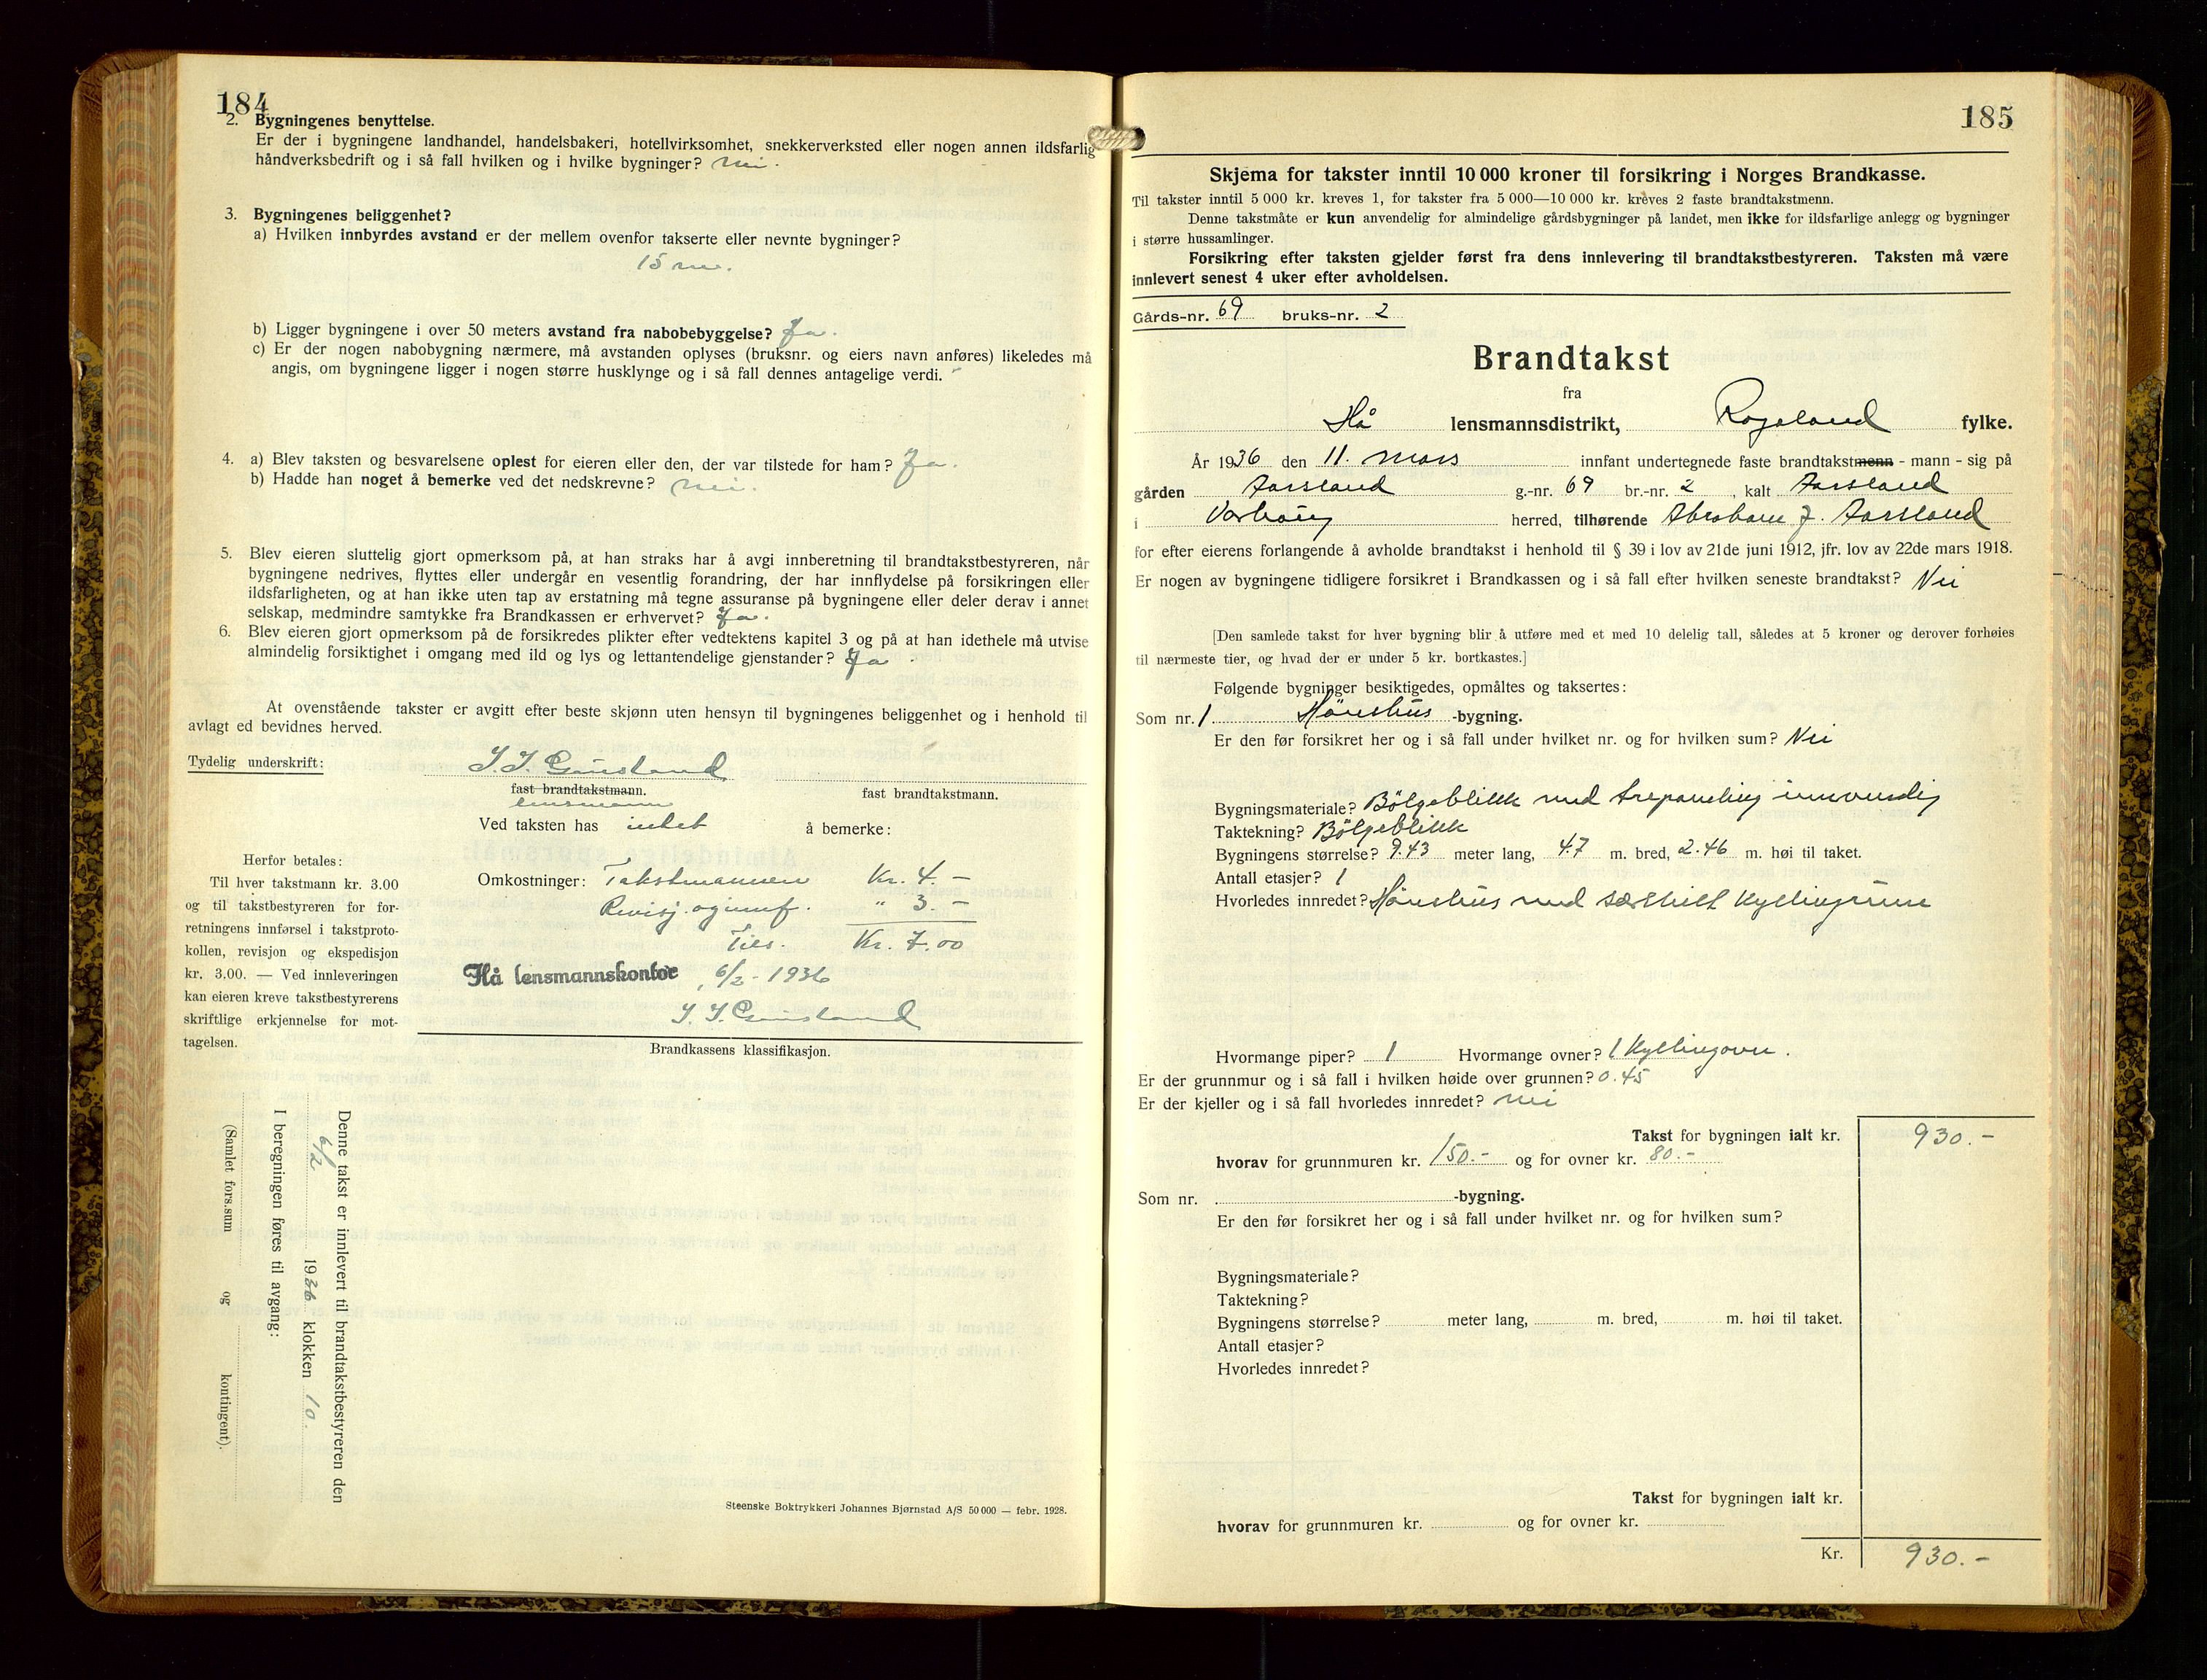 184
2. Bygningenes benyttelse.
Er der i bygningene landhandel, handelsbakeri, hotellvirksomhet, snekkerverksted eller nogen annen ildsfarlig
håndverksbedrift og i så fall hvilken og i hvilke bygninger? nei.
3. Bygningenes beliggenhet?
a) Hvilken innbyrdes avstand er der mellem ovenfor takserte eller nevnte bygninger?
15 m.
b) Ligger bygningene i over 50 meters avstand fra nabobebyggelse? Ja.
c) Er der nogen nabobygning nærmere, må avstanden oplyses (bruksnr. og eiers navn anføres) likeledes må
angis, om bygningene ligger i nogen større husklynge og i så fall dennes antagelige verdi. -
4. a) Blev taksten og besvarelsene oplest for eieren eller den, der var tilstede for ham? Ja.
b) Hadde han noget å bemerke ved det nedskrevne? nei.
5. Blev eieren sluttelig gjort opmerksom på, at han straks har å avgi innberetning til brandtakstbestyreren, når
bygningene nedrives, flyttes eller undergår en vesentlig forandring, der har innflydelse på forsikringen eller
ildsfarligheten, og at han ikke uten tap av erstatning må tegne assuranse på bygningene eller deler derav i annet
selskap, medmindre samtykke fra Brandkassen er erhvervet? Ja.
6. Blev eieren gjort opmerksom på de forsikredes plikter efter vedtektens kapitel 3 og på at han idethele må utvise
almindelig forsiktighet i omgang med ild og lys og lettantendelige gjenstander? Ja
At ovenstående takster er avgitt efter beste skjønn uten hensyn til bygningenes beliggenhet og i henhold til
avlagt ed bevidnes herved.
Tydelig underskrift:
fast brandtakstmann. fast brandtakstmann.
lensmann
Ved taksten has intet å bemerke:
Herfor betales:
Til hver takstmann kr. 3.00
og til takstbestyreren for for-
retningens innførsel i takstproto-
kollen, revisjon og ekspedisjon
kr. 3.00. — Ved innleveringen
kan eieren kreve takstbestyrerens
skriftlige erkjennelse for mot-
tagelsen.
Omkostninger: Takstmannen Kr. 4.-
Revisj. og innf. " 3.-
Tils. Kr. 7.00
Hå lensmannskontor, 6/2-1936
Brandkassens klassifikasjon.
Denne takst er innlevert til brandtakstbestyreren den
6/2 1936 klokken 10.
I beregningen føres til avgang:
(Samlet fors.sum og kontingent).
Steenske Boktrykkeri Johannes Bjørnstad A/S 50 000 — febr. 1928.
185
Skjema for takster inntil 10 000 kroner til forsikring i Norges Brandkasse.
Til takster inntil 5 000 kr. kreves 1, for takster fra 5 000—10 000 kr. kreves 2 faste brandtakstmenn.
Denne takstmåte er kun anvendelig for almindelige gårdsbygninger på landet, men ikke for ildsfarlige anlegg og bygninger
i større hussamlinger.
Forsikring efter taksten gjelder først fra dens innlevering til brandtakstbestyreren. Taksten må være
innlevert senest 4 uker efter avholdelsen.
Gårds-nr. 69 bruks-nr. 2
Brandtakst
fra
Hå lensmannsdistrikt, Rogaland fylke.
År 1936 den 11. mars innfant undertegnede faste brandtakstmenn - mann - sig på
gården Aarsland g.-nr. 69 br.-nr. 2, kalt Aarsland
i Varhaug herred, tilhørende Abraham J. Aarsland
for efter eierens forlangende å avholde brandtakst i henhold til § 39 i lov av 21de juni 1912, jfr. lov av 22de mars 1918.
Er nogen av bygningene tidligere forsikret i Brandkassen og i så fall efter hvilken seneste brandtakst? Nei
[Den samlede takst for hver bygning blir å utføre med et med 10 delelig tall, således at 5 kroner og derover forhøies
til nærmeste tier, og hvad der er under 5 kr. bortkastes.]
Følgende bygninger besiktigedes, opmåltes og taksertes:
Som nr. 1 Hönshus -bygning.
Er den før forsikret her og i så fall under hvilket nr. og for hvilken sum? Nei
Bygningsmateriale? Bölgeblikk med trepaneling innvendig
Taktekning? Bölgeblikk
Bygningens størrelse? 9.43 meter lang, 4.7 m. bred, 2.46 m. høi til taket.
Antall etasjer? 1
Hvorledes innredet? Hönshus med særskilt Kyllingrum
Hvormange piper? 1 Hvormange ovner? 1 Kyllingovn.
Er der grunnmur og i så fall i hvilken høide over grunnen? 0.45
Er der kjeller og i så fall hvorledes innredet? nei
Takst for bygningen ialt kr. 930.-
hvorav for grunnmuren kr. 150.- og for ovner kr. 80.-
Som nr. -bygning.
Er den før forsikret her og i så fall under hvilket nr. og for hvilken sum?
Bygningsmateriale?
Taktekning?
Bygningens størrelse? meter lang, m. bred, m. høi til taket.
Antall etasjer?
Hvorledes innredet?
Takst for bygningen ialt kr.
hvorav for grunnmuren kr. og for ovner kr.
Kr. 930.-